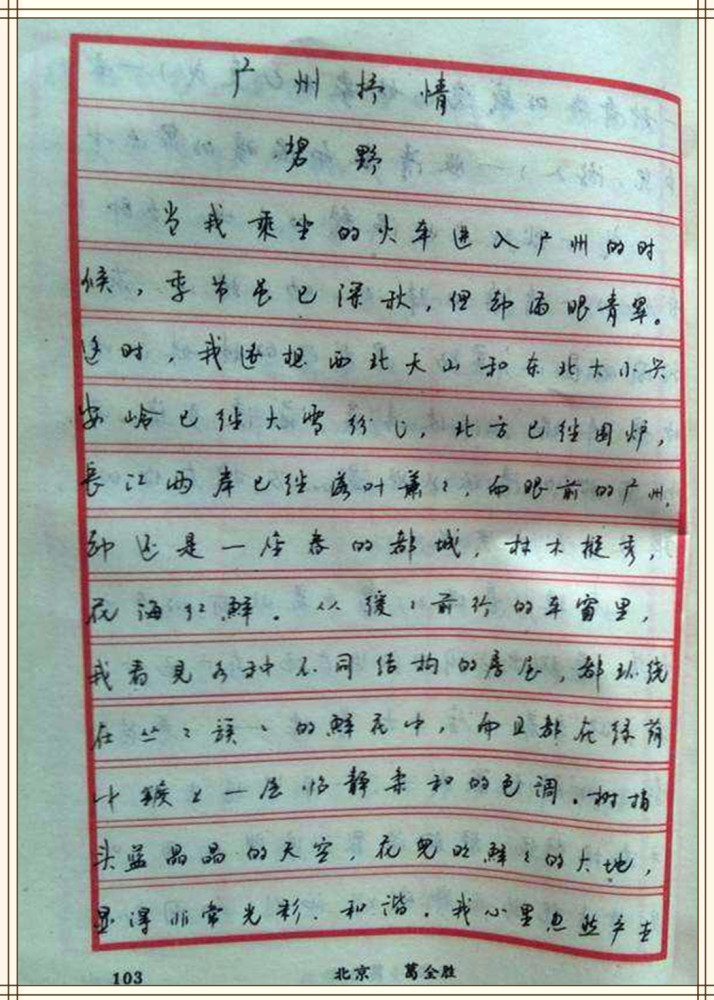 广州抒情
碧野
当我乘坐的火车进入广州的时
候，季节虽已深秋，但却满眼青翠。
这时，我遥想西北天山和东北大小兴
安岭已经大雪纷飞，北方已经围炉，
长江两岸已经落叶萧萧，而眼前的广州，
却还是一座春的都城，林木挺秀，
花海红鲜。从缓缓前行的车窗里，
我看见各种不同结构的房屋，都环绕
在丛丛簇簇的鲜花中，而且都在绿荫
一层恬静柔和的色调。树梢
头蓝晶晶的天空，花儿鲜鲜的大地，
显得非常光彩、和谐。我心里忽然产生
103 北京 葛金胜